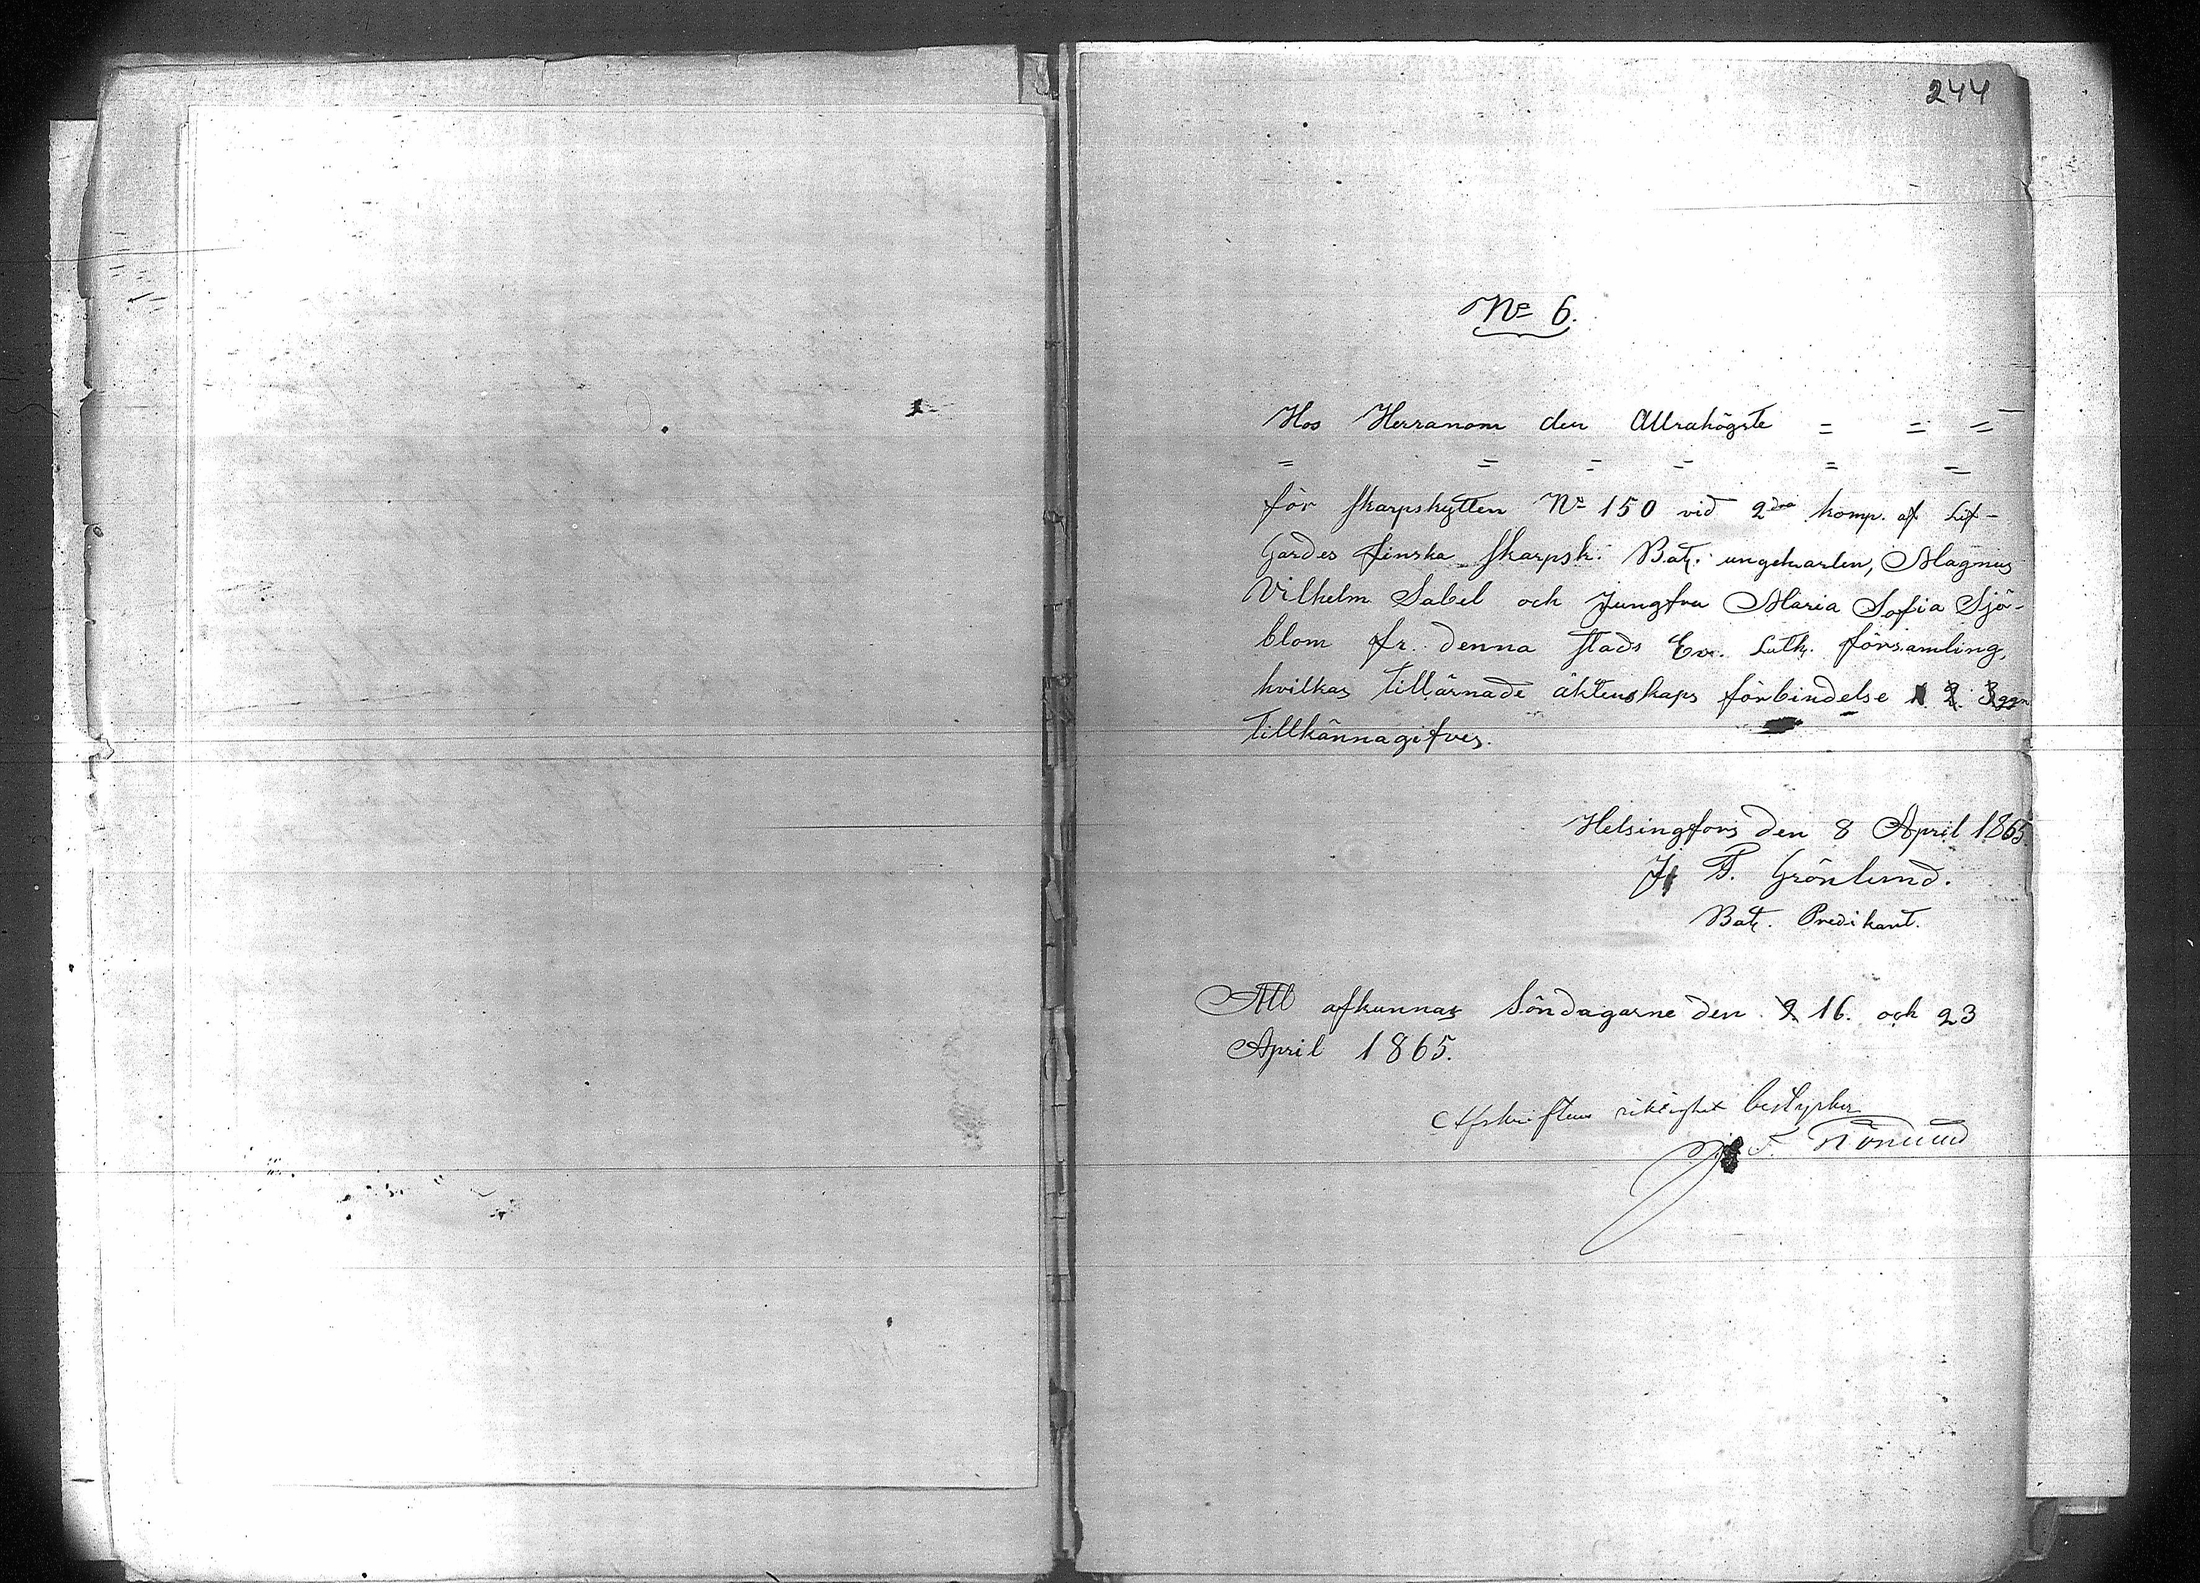 244
No 6.
Hos Herranom den Allrahögste = = =
= = = = = =
för skarpskytten No 150 vid 2dra komp. af Lif-
Gardes finska skarpsk. Bat. ungekarlen, Magnus
Vilhelm Sabel och Jungfru Maria Sofia Sjö-
blom fr. denna stads Ev. Luth. församling,
hvilkas tillärnade äktenskaps förbindelse 1 2. 3 ggn
tillkännagifves.
Helsingfors den 8 April 1865.
J. F. Grönlund.
Bat. Predikant.
All afkunnas Söndagarne den 9. 16. och 23
April 1865.
Afskriftens riktighet bestyrker
F. Grönlund